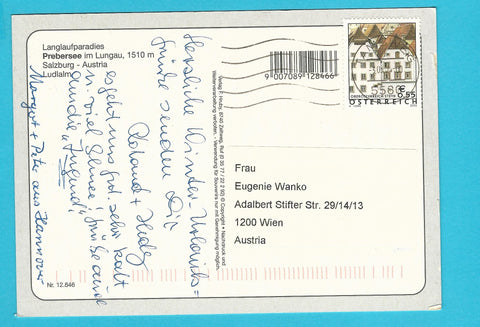 Langlaufparadies
Prebersee im Lungau, 1510 m
Salzburg - Austria
Ludlalm
Herzliche Winter-Urlaubs=
grüße senden Dir
Roland + Hedy
es geht uns gut. sehr kalt
u. viel Schnee, Grüße auch
an die "Jugend"
Margot + Peter aus Hannover
9 007089 128466
Frau
Eugenie Wanko
Adalbert Stifter Str. 29/14/13
1200 Wien
Austria
€ 0,55
ÖSTERREICH
Nr. 12.846